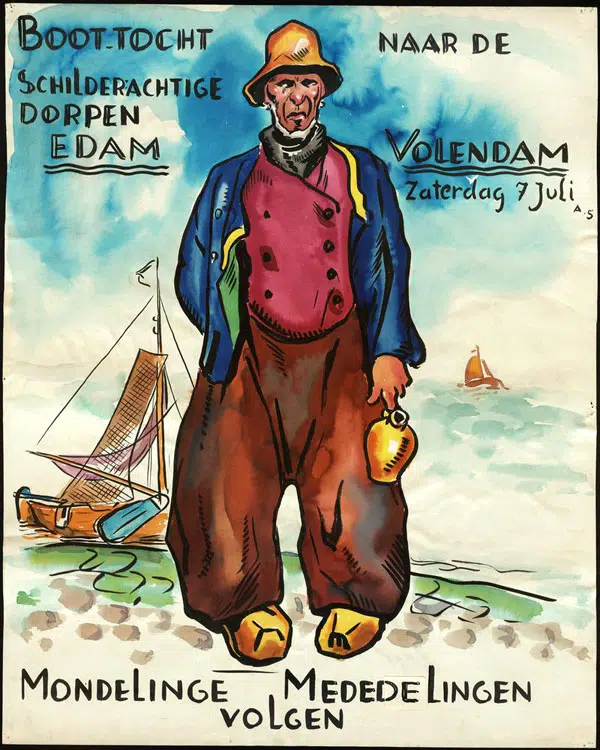 BOOT-TOCHT NAAR DE
SCHILDERACHTIGE
DORPEN
EDAM VOLENDAM
Zaterdag 7 Juli
A.S
MONDELINGE MEDEDELINGEN
VOLGEN